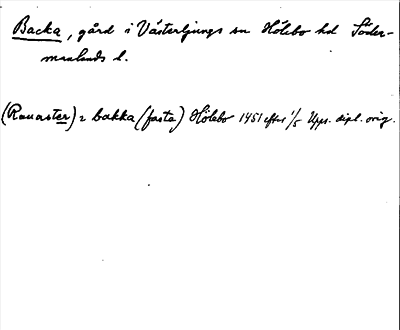 Backa, gård i Västerljungs sn Hölebo hd Söder-
manlands l.
(Ravaster) i bakka (fasta) Hölebo 1451 efter 1/5 Upps. dipl. orig.